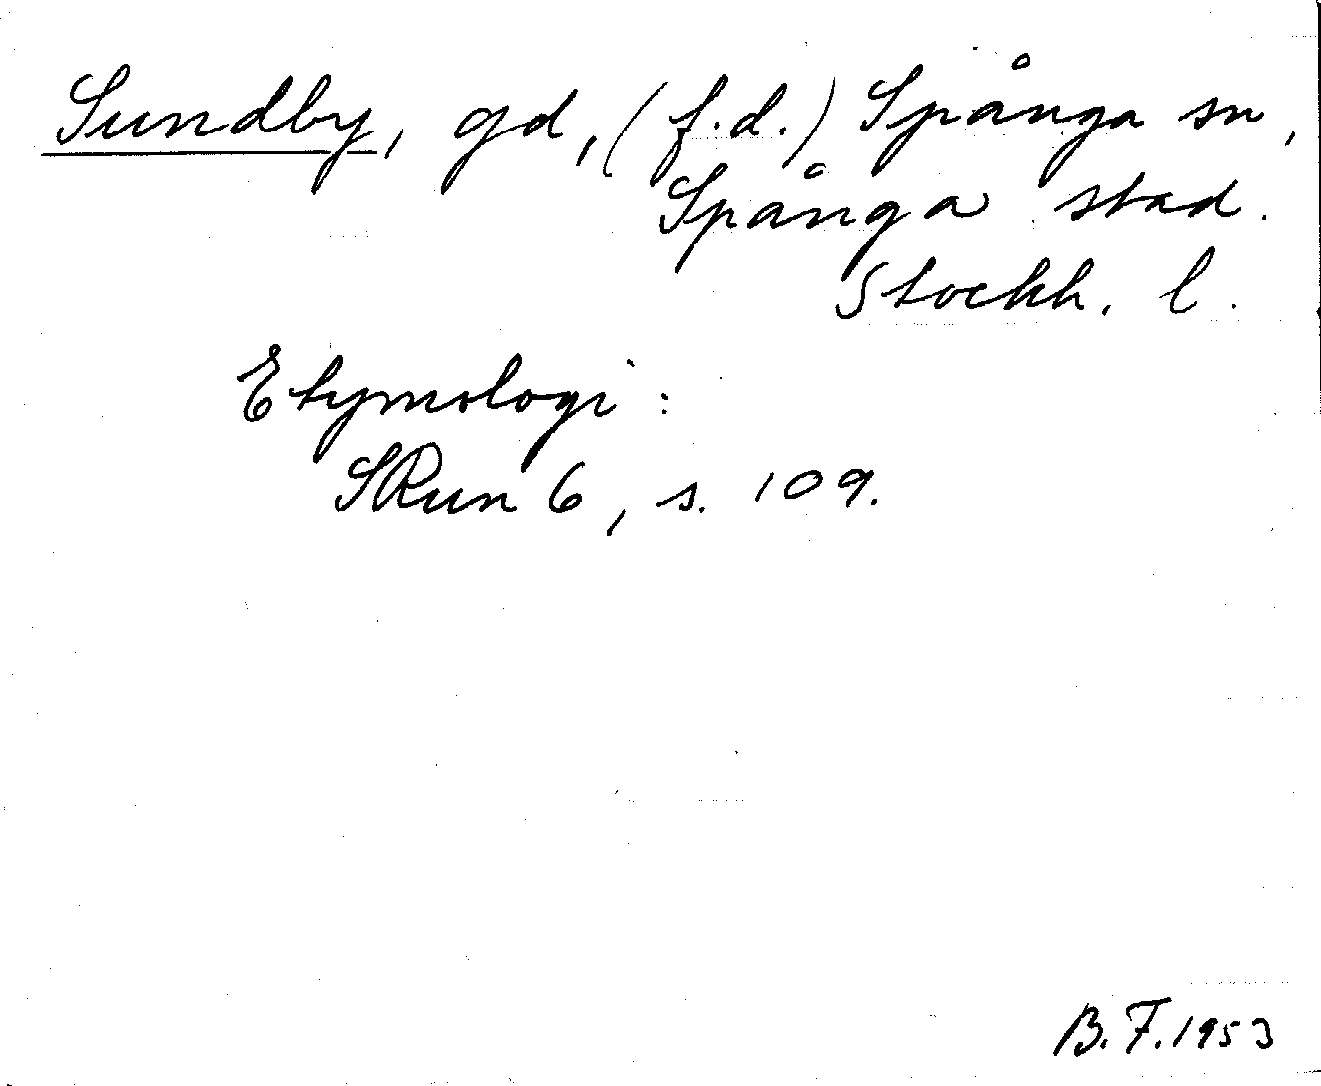 Sundby, gd, (f.d.) Spånga sn,
Spånga stad.
Stockh. l.
Etymologi:
SRun 6, s. 109.
B.F. 1953